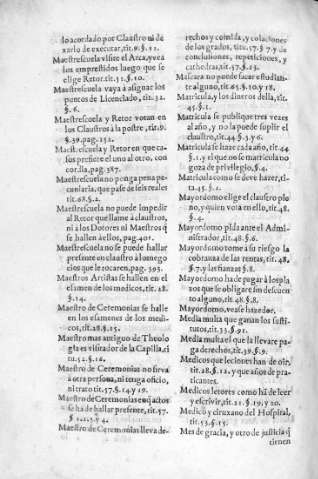 lo acordado por Claustro ni de
xarlo de executar, tit. 9. §. 11.
Maestrescuela visite el Arca, y vea
los emprestidos luego que se
elige Retor. tit. 51. §. 10.
Maestrescuela vaya à asignar los
puntos de Licenciado, tit. 32.
§. 6.
Maestrescuela y Retor votan en
los Claustros à la postre, tit. 9.
§. 39. pag. 152.
Maestrescuela y Retor en que ca-
sos prefiere el uno al otro, con
cordia, pag. 387.
Maestrescuela no ponga pena pe-
cuniaria, que pase de seis reales
tit. 68. §. 2.
Maestrescuela no puede impedir
al Retor que llame à claustros,
ni à los Dotores ni Maestros q̃
se hallen à ellos, pag. 401.
Maestrescuela no se puede hallar
presente en claustro à los nego
cios que le tocaren, pag. 395.
Maestros Artistas se hallen en el
esamen de los medicos, tit. 28.
§. 14.
Maestro de Ceremonias se halle
en los esamenes de los medi-
cos, tit. 28. §. 15.
Maestro mas antiguo de Theolo
gia es visitador de la Capilla, ti
tu. 52. §. 16.
Maestro de Ceremonias no sirva
à otra persona, ni tenga oficio,
ni trato tit. 57. §. 14. y 19.
Maestro de Ceremonias en q̃ actos
se ha de hallar presente, tit. 57.
§. 1. 2. 3. y 4.
Maestro de Ceremonias lleva de-
rechos y comida, y colaciones
de los grados, titu. 57. § 7. y de
conclusiones, repeticiones, y
cathedras, tit. 57. §. 23.
Mascara no puede sacar estudian-
te alguno, tit. 65. §. 10. y 18.
Matricula, y los dineros della, tit.
45. §. 1.
Matricula se publique tres veces
al año, y no la puede suplir el
claustro, tit. 44. §. 3. y 6.
Matricula se haze cada año, tit. 44
§. 1. y el que no se matricula no
goza de privilegio, §. 4.
Matricula como se deve hazer, ti-
t. 45. §. 2.
Mayordomo elige el claustro ple
no, y quien vota en ello, tit. 48.
§. 4.
Mayordomo pida ante el Admi-
nistrador, tit. 48. §. 6.
Mayordomo tome à su riesgo la
cobranza de las rentas, tit. 48.
§. 7. y las fianzas § 8.
Mayordomo ha de pagar à los pla
zos que se obligare sin descuen
to alguno, tit. 48. §. 8.
Mayordomo, vease hazedor.
Media multa que ganan los susti-
tutos, tit. 33. §. 91.
Media multa el que la llevare pa-
ga derechos, tit. 39. §. 9.
Medicos que leciones han de oir,
tit. 28. §. 12. y que años de pra-
ticantes.
Medicos letores como hã de leer
y escrivir, tit. 21. §. 19. y 20.
Medico y ciruxano del Hospital,
tit. 53. §. 15.
Mes de gracia, y otro de justicia q̃
tienen